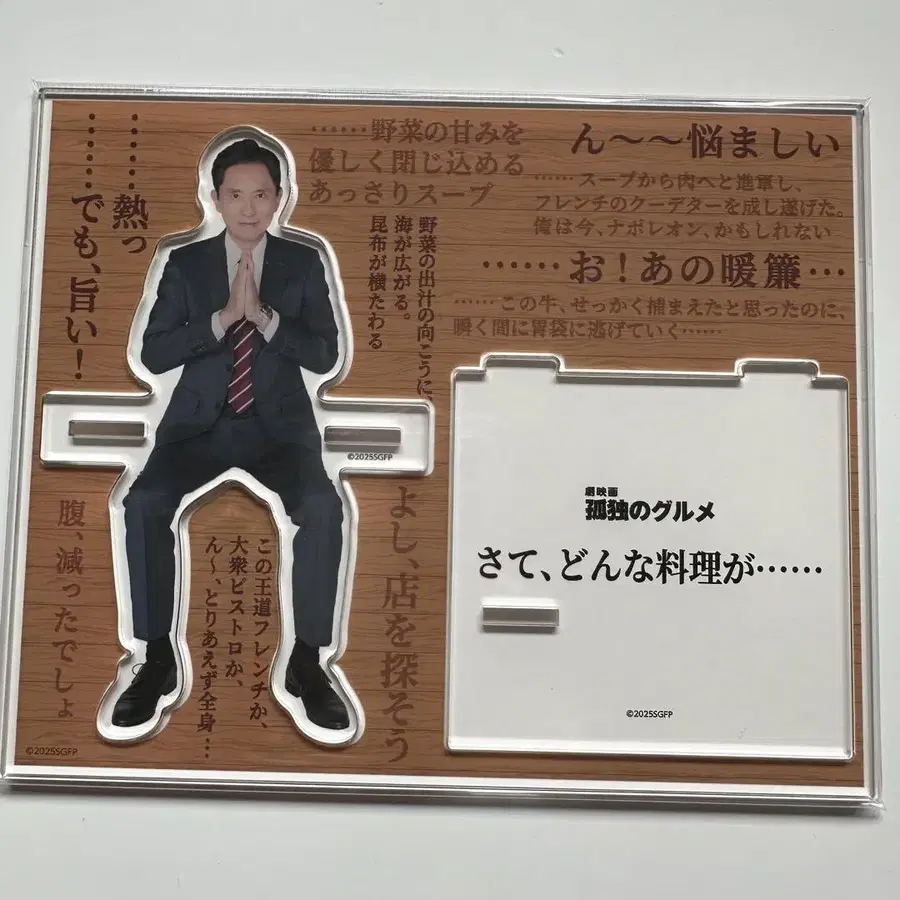 ………熱っ
………でも、旨い！
……野菜の甘みを
優しく閉じ込める
あっさりスープ
野菜の出汁の向こうに、
海が広がる。
昆布が横たわる
ん～～悩ましい
……スープから肉へと進軍し、
フレンチのクーデターを成し遂げた。
俺は今、ナポレオン、かもしれない
……お！あの暖簾…
……この牛、せっかく捕まえたと思ったのに、
瞬く間に胃袋に逃げていく……
©2025SGFP
腹、減ったでしょ
この王道フレンチか、
大衆ビストロか、
ん～、とりあえず全身…
よし、店を探そう
©2025SGFP
劇映画
孤独のグルメ
さて、どんな料理が……
©2025SGFP